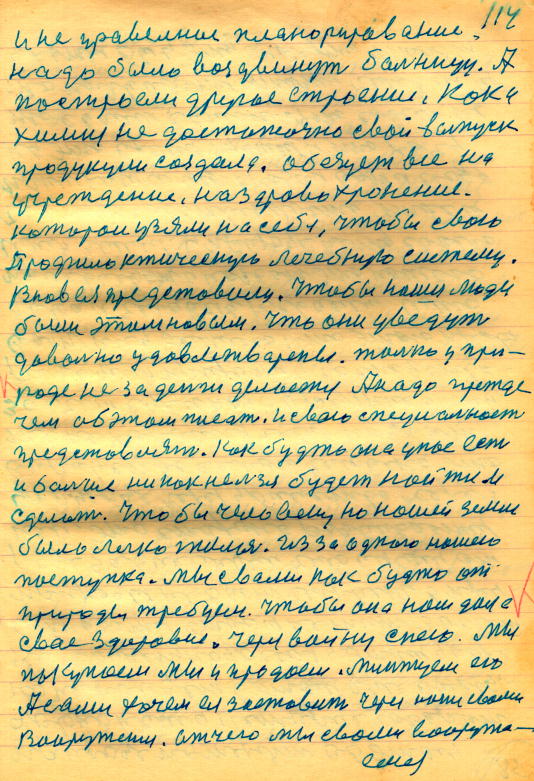 114
и не правельное планорирование.
надо было воздвинут балницу. А
построели другое строение. Кока
химия не достаточно свой выпуск
продукции создала. обязует все на
учреждение. на здравохронение.
которои взяли на себя, чтобы свою
Профилоктическую лечебную систему.
В новь ей предстовили. Чтобы наши люди
были этим новым. Что они уведут
доволно удовлетварены. толко у при-
роде не за денги делоетя А надо прежде
чем об этом писат. и свою специалност
предстовлят. Как будто она у нас ест
и болше ни как нелзя будет найти и
сделат. Что бы человеку на нашей земли
было легко жится. Из за одного нашего
поступка. Мы с вами как будто от
природы требуем. Чтобы она нам дала
свае здоровие. через войну слего. Мы
покупаем мы и продаем. Миттуем его
А сами хочем ея заставит через наши своими
Вооружении. от чего мы с вами вооружа-
емся